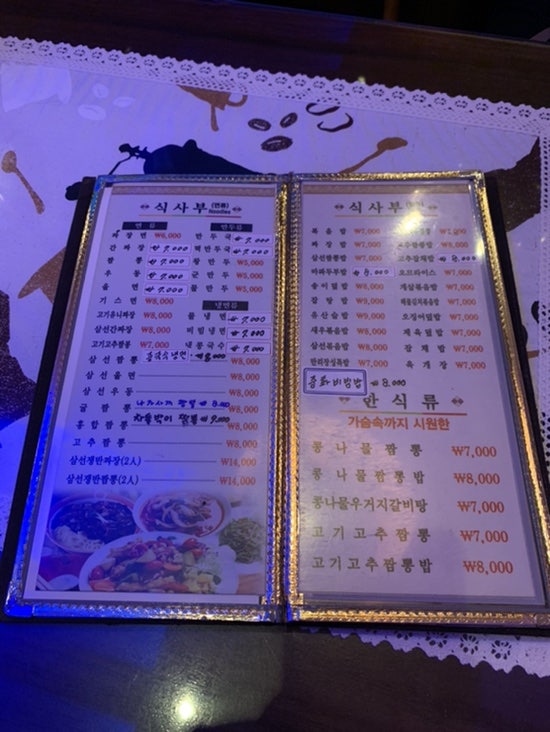 식사부 (면류) noodles
면 류
짜장면 ₩6,000
간짜장 ₩7,000
짬뽕 ₩7,000
우동 ₩7,000
울면 ₩7,000
기스면 ₩8,000
고기유니짜장 ₩8,000
삼선간짜장 ₩8,000
고기고추짬뽕 ₩7,000
삼선짬뽕 ₩8,000
삼선울면 ₩8,000
삼선우동 ₩8,000
굴짬뽕 ₩8,000
홍합짬뽕 ₩8,000
고추짬뽕 ₩8,000
삼선쟁반짜장(2人) ₩14,000
삼선쟁반짬뽕(2人) ₩14,000
만두류
만두국 ₩7,000
떡만두국 ₩7,000
물만두 ₩5,000
군만두 ₩5,000
찐만두 ₩5,000
냉면류
물냉면 ₩7,000
비빔냉면 ₩7,000
냉콩국수 ₩7,000
중국식냉면 ₩8,000
나가사끼짬뽕 ₩8,000
차돌박이짬뽕 ₩9,000
식사부
볶음밥 ₩7,000
짜장밥 ₩7,000
삼선짬뽕밥 ₩8,000
마파두부밥 ₩7,000
송이덮밥 ₩8,000
잡탕밥 ₩8,000
유산슬밥 ₩9,000
새우볶음밥 ₩8,000
삼선볶음밥 ₩8,000
만리장성특밥 ₩7,000
₩7,000
₩8,000
고추잡채밥 ₩8,000
오므라이스 ₩7,000
게살볶음밥 ₩7,000
해물김치볶음밥 ₩7,000
오징어덮밥 ₩7,000
제육덮밥 ₩7,000
잡채밥 ₩7,000
육개장 ₩7,000
중화비빔밥 ₩8,000
한식류
가슴속까지 시원한
콩나물짬뽕 ₩7,000
콩나물짬뽕밥 ₩8,000
콩나물우거지갈비탕 ₩7,000
고기고추짬뽕 ₩7,000
고기고추짬뽕밥 ₩8,000